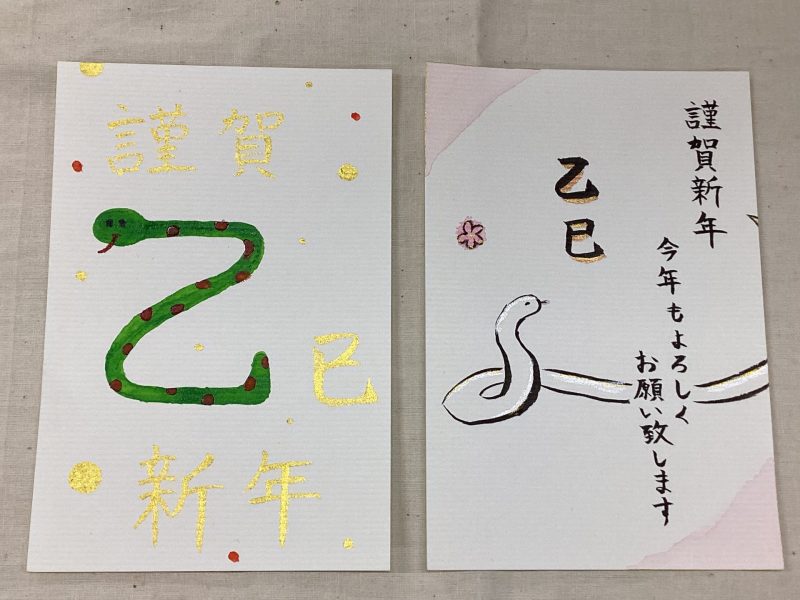 謹賀
乙
巳
新年
謹賀新年
乙巳
今年もよろしく
お願い致します